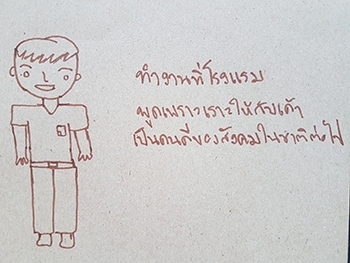 ทำงานที่โรงแรม
พูดเพราะเราะให้สับเค้า
เป็นคนดีของสังคมในชาติต่อไป